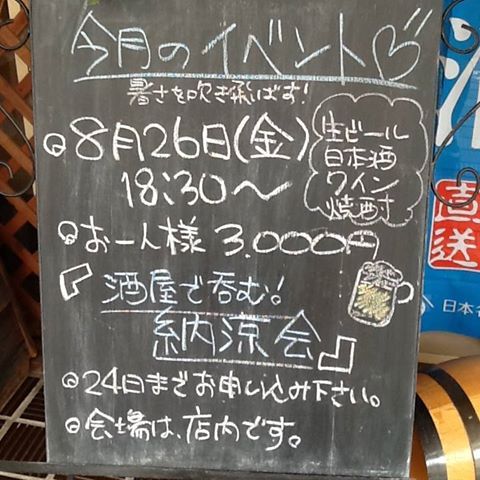 今月のイベント
暑さを吹き飛ばす!
8月26日(金)
18:30〜
生ビール
日本酒
ワイン
焼酎
お一人様 3.000円
『酒屋で呑む!
納涼会』
24日までお申し込み下さい。
会場は、店内です。
直送
日本